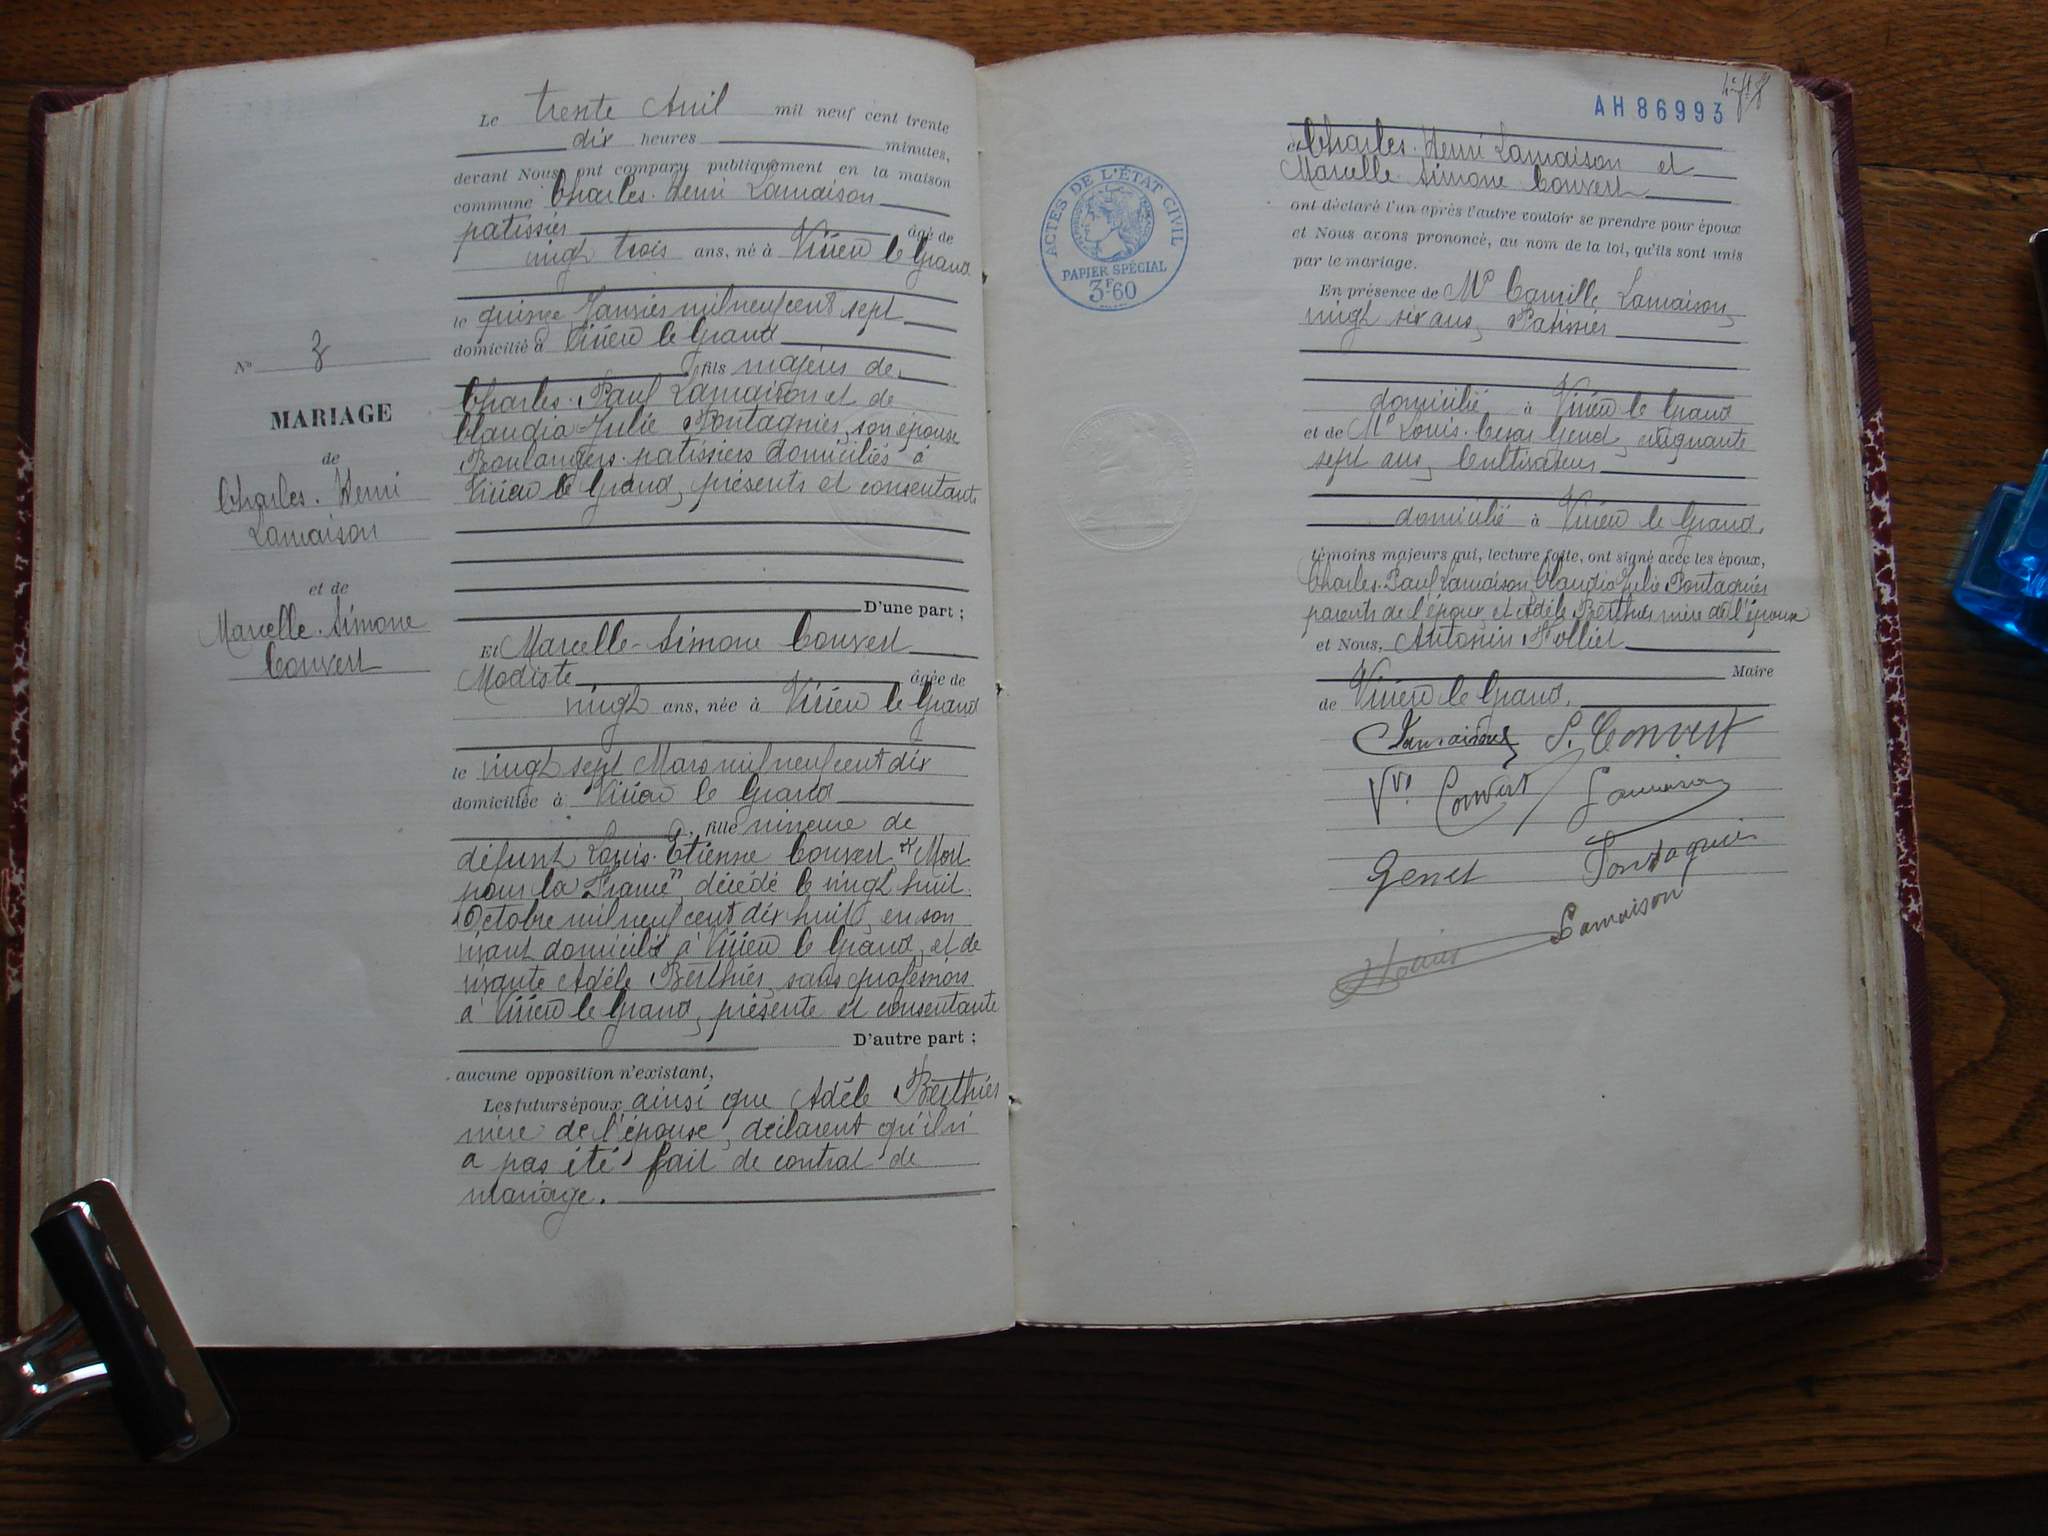 Nº 3
MARIAGE
de
Charles-Henri
Lamaison
et de
Marcelle-Simone
Convert
Le trente Avril mil neuf cent trente
dix heures minutes,
devant Nous ont comparu publiquement en la maison
commune Charles-Henri Lamaison
patissier âgé de
vingt trois ans, né à Virieu le Grand
le quinze Janvier mil neuf cent sept
domicilié à Virieu le Grand
fils majeur de
Charles-Paul Lamaison et de
Claudia Julie Pontagnier, son épouse
Boulangers-patissiers domiciliés à
Virieu le Grand, présents et consentants
D'une part ;
Et Marcelle-Simone Convert
Modiste âgée de
vingt ans, née à Virieu le Grand
le vingt sept Mars mil neuf cent dix
domiciliée à Virieu le Grand
fille mineure de
défunt Louis-Etienne Convert "Mort
pour la France", décédé le vingt huit
Octobre mil neuf cent dix huit, en son
vivant domicilié à Virieu le Grand, et de
vivante Adèle Berthier, sans profession
à Virieu le Grand, présente et consentante
D'autre part ;
aucune opposition n'existant,
Les futurs époux ainsi que Adèle Berthier
mère de l'épouse, déclarent qu'il n'
a pas été fait de contrat de
mariage.
AH 86993
ACTES DE L'ÉTAT CIVIL
PAPIER SPÉCIAL
3F60
et Charles-Henri Lamaison et
Marcelle Simone Convert
ont déclaré l'un après l'autre vouloir se prendre pour époux
et Nous avons prononcé, au nom de la loi, qu'ils sont unis
par le mariage.
En présence de Mr Camille Lamaison,
vingt six ans, Patissier
domicilié à Virieu le Grand
et de Mr Louis-Cesar Genet, cinquante
sept ans, Cultivateur
domicilié à Virieu le Grand,
témoins majeurs qui, lecture faite, ont signé avec les époux,
Charles-Paul Lamaison, Claudia Julie Pontagnier
parents de l'époux, et Adèle Berthier mère de l'épouse
et Nous, Antonin Hollier
Maire
de Virieu le Grand.
Lamaison S. Convert
Vve Convert Lamaison
Genet Pontagnier
Lamaison